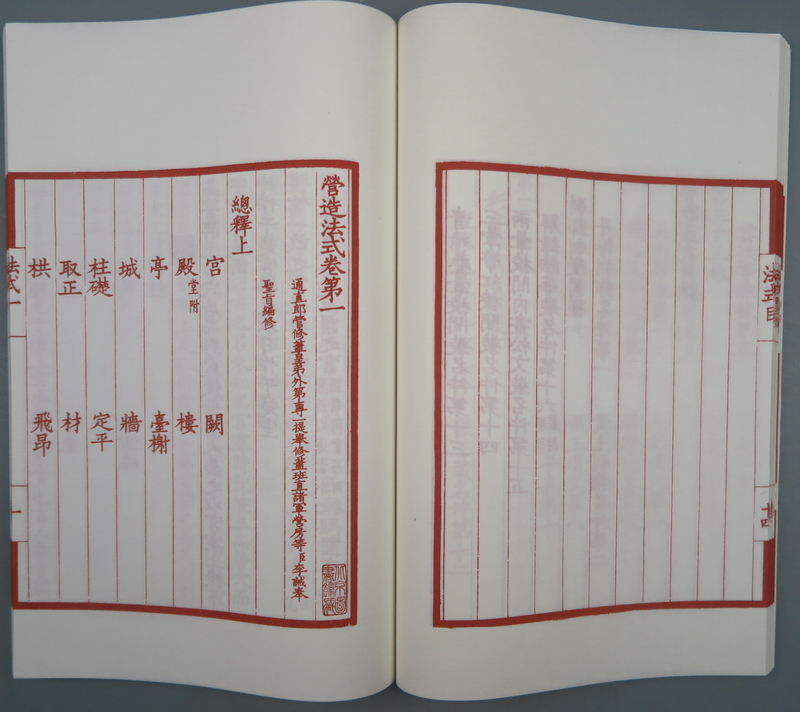 法式目
廿四
營造法式卷第一
通直郎管修蓋皇弟外第專一提舉修蓋班直諸軍營房等臣李誡奉
聖旨編修
總釋上
宮 闕
殿堂附 樓
亭 臺榭
城 牆
柱礎 定平
取正 材
栱 飛昂
法式一
一